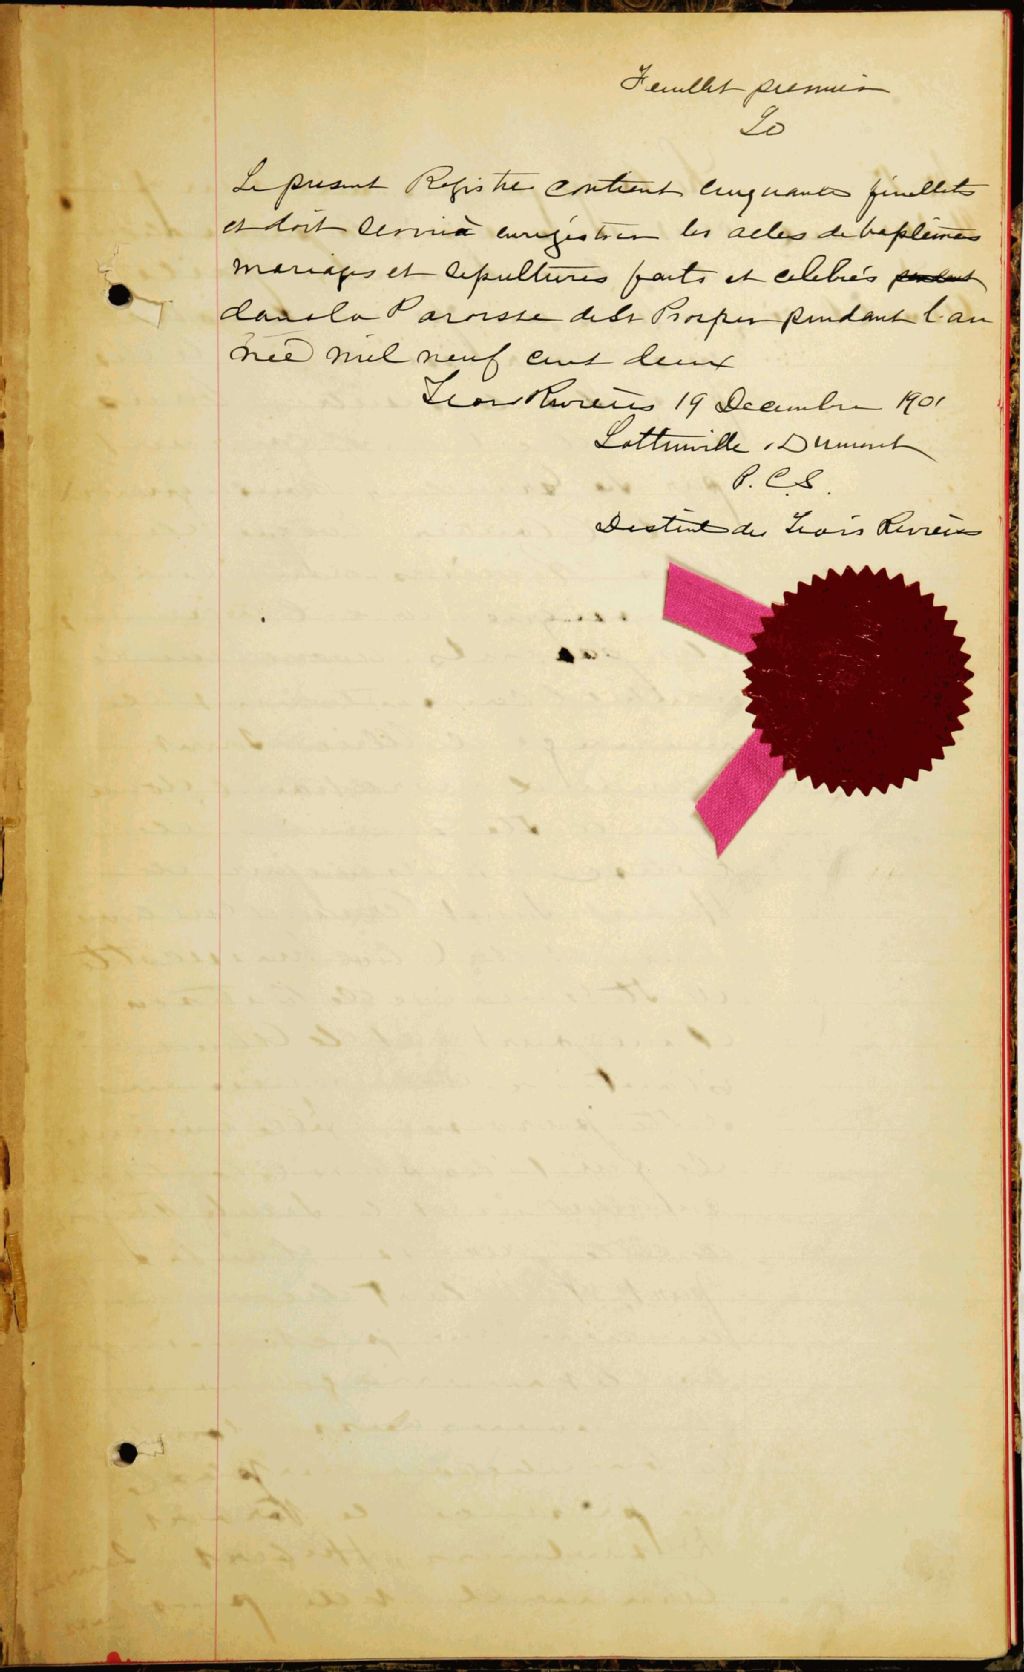 Feuillet premier
LD
Le present Registre contient cinquante feuillets
et doit servir à enregistrer les actes de baptêmes
mariages et sepultures faits et celebrés pendant
dans la Paroisse de St Prosper pendant l'an
née mil neuf cent deux
Trois Rivieres 19 Decembre 1901
Lottinville & Dumont
P. C. S.
District des Trois Rivières